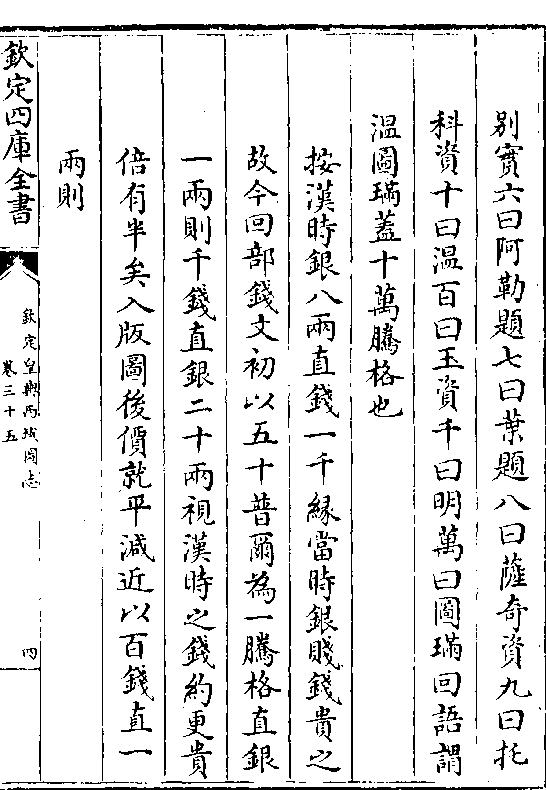 別實六曰阿勒題七曰葉題八曰薩奇資九曰托
科資十曰温百曰玉資千曰明萬曰圖璊回語謂
温圖璊蓋十萬騰格也
按漢時銀八兩直錢一千緣當時銀賤錢貴之
故今回部錢文初以五十普爾為一騰格直銀
一兩則千錢直銀二十兩視漢時之錢約更貴
倍有半矣入版圖後價就平減近以百錢直一
兩則
欽定四庫全書
欽定皇輿西域圖志
卷三十五
四